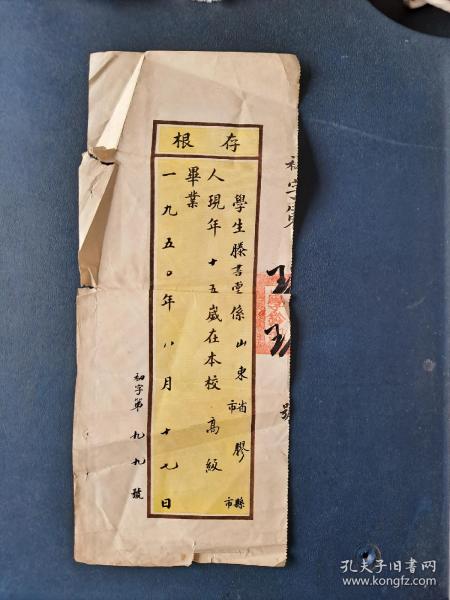 存根
學生滕書雲係山東省市膠縣市
人現年十五歲在本校高級
畢業
一九五〇年八月十七日
初字第九九號
號
孔夫子旧书网
www.kongfz.com